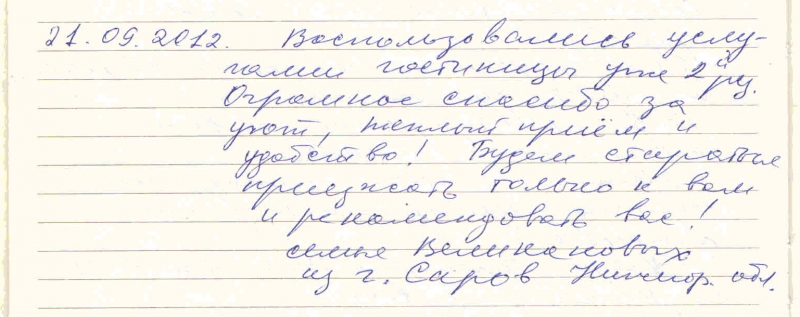 21.09.2012. Воспользовались услу-
гами гостиницы уже 2й раз.
Огромное спасибо за
уют, теплый приём и
удобство! Будем стараться
приезжать только к вам
и рекомендовать вас!
семья Великановых
из г. Саров Нижегор. обл.